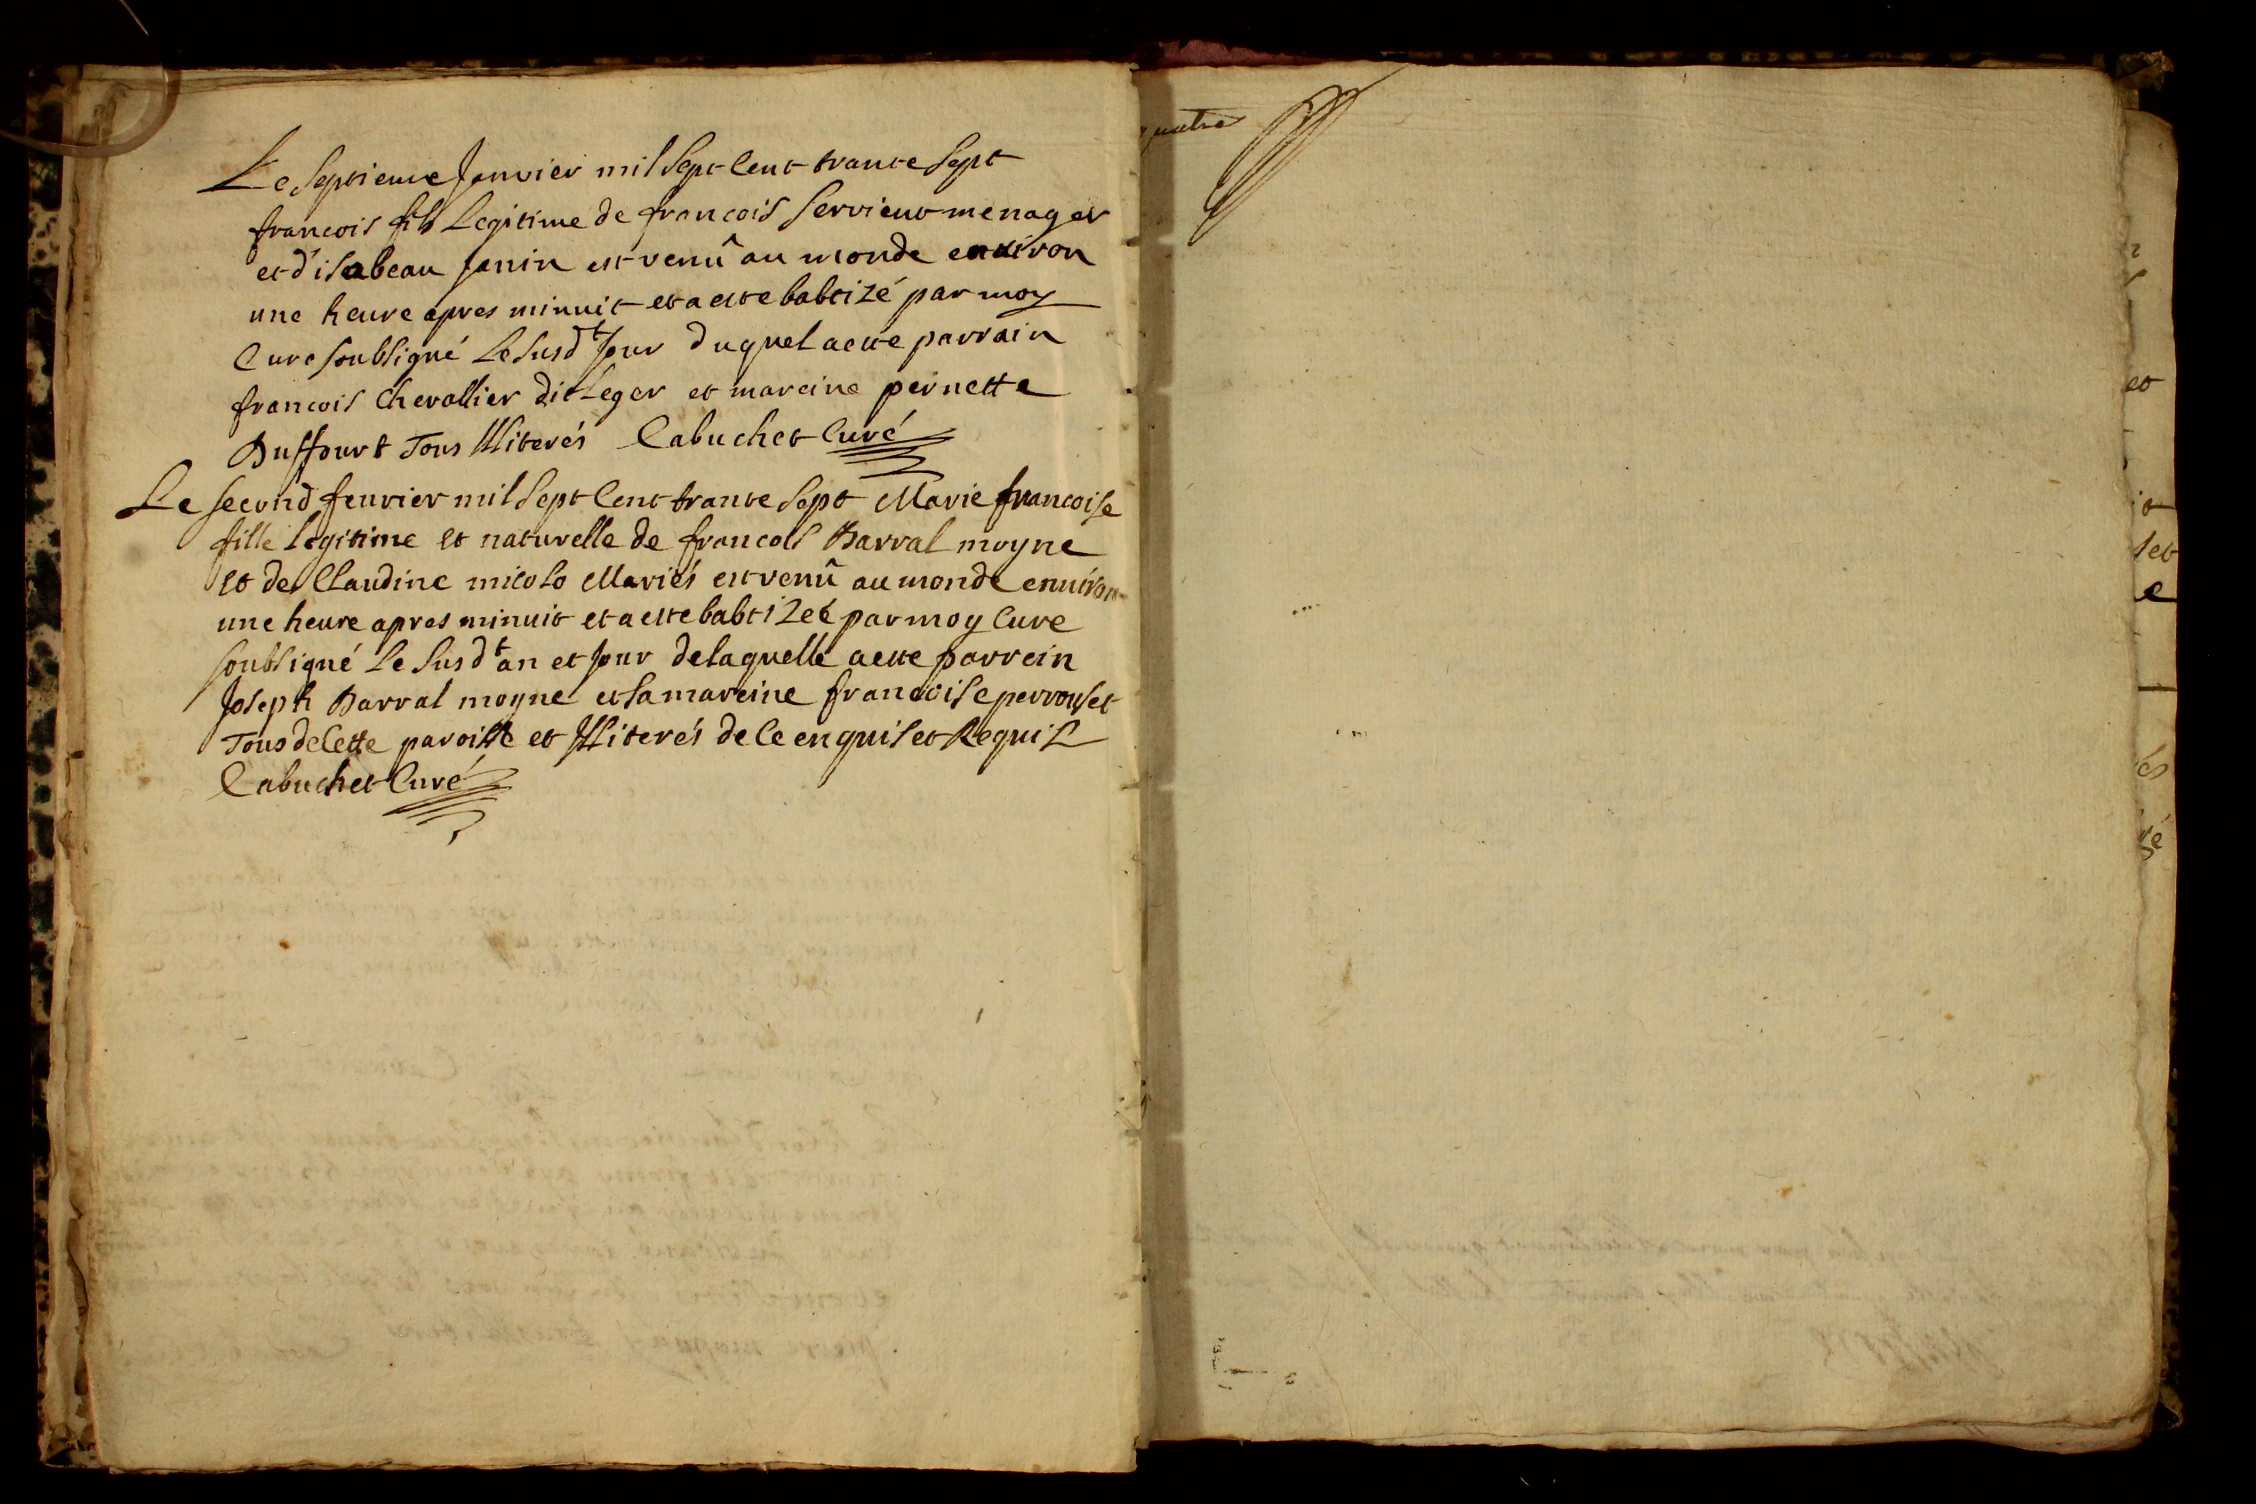 Le septieme Janvier mil sept Cent trante sept
francois fils Legitime de francois servient menager
et d'isabeau Janin est venû au monde environ
une heure apres minuit et a este babtizé par moy
Cure soubsigné Le susdt Jour duquel a este parrain
francois Chevallier dit Leger et mareine pernette
Duffourt Tous Illiterés Cabuchet Curé
Le second feuvrier mil sept Cent trante sept Marie francoise
fille legitime et naturelle de francois Barral moyne
et de Claudine micolo Mariés est venû au monde environ
une heure apres minuit et a este babtizeé par moy Cure
soubsigné Le susdt an et Jour de laquelle a este parrein
Joseph Barral moyne et sa mareine francoise perrouset
Tous de Cette paroisse et Illiterés de Ce enquis et Requis
Cabuchet Curé
quatre
et
it
set
e